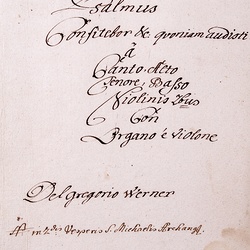 Psalmus
Confitebor &c quoniam audisti
à
Canto, Alto
Tenore, Basso
Violinis 2bus
Con
Organo è Violone
Del Gregorio Werner
in 2dis Vesperis S. Michaelis Archang.